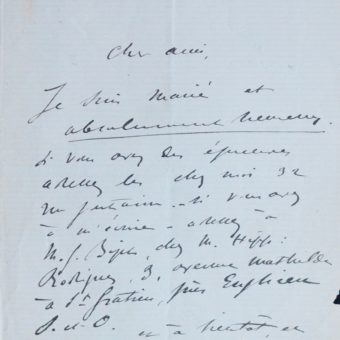 Cher ami,
Je suis marié et
absolument heureux.
Si vous avez des épreuves
chez moi 32
si vous avez
à m'écrire - à
M. G. Bizet, chez M. Hipp:
Rodrigues, 3, avenue Mathilde
à St Gratien, près Enghien
S.-et-O. et à bientôt,